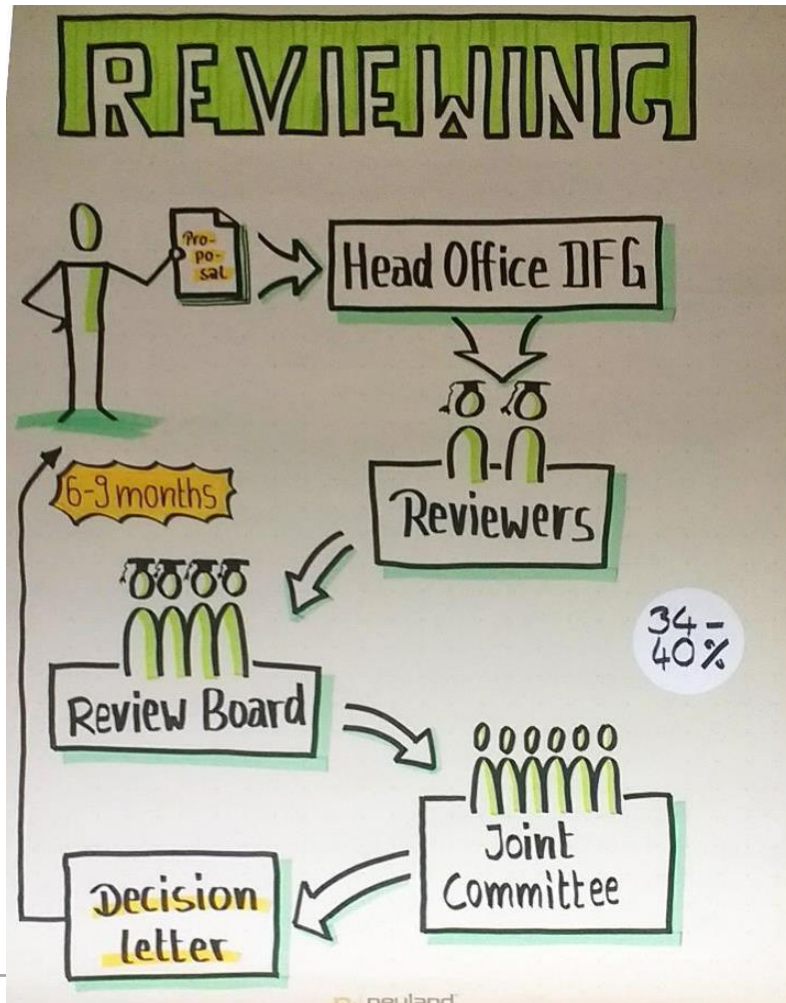 REVIEWING
Pro-
po-
sal
Head Office DFG
Reviewers
6-9 months
Review Board
34-
40%
Joint
Committee
Decision
letter
neuland